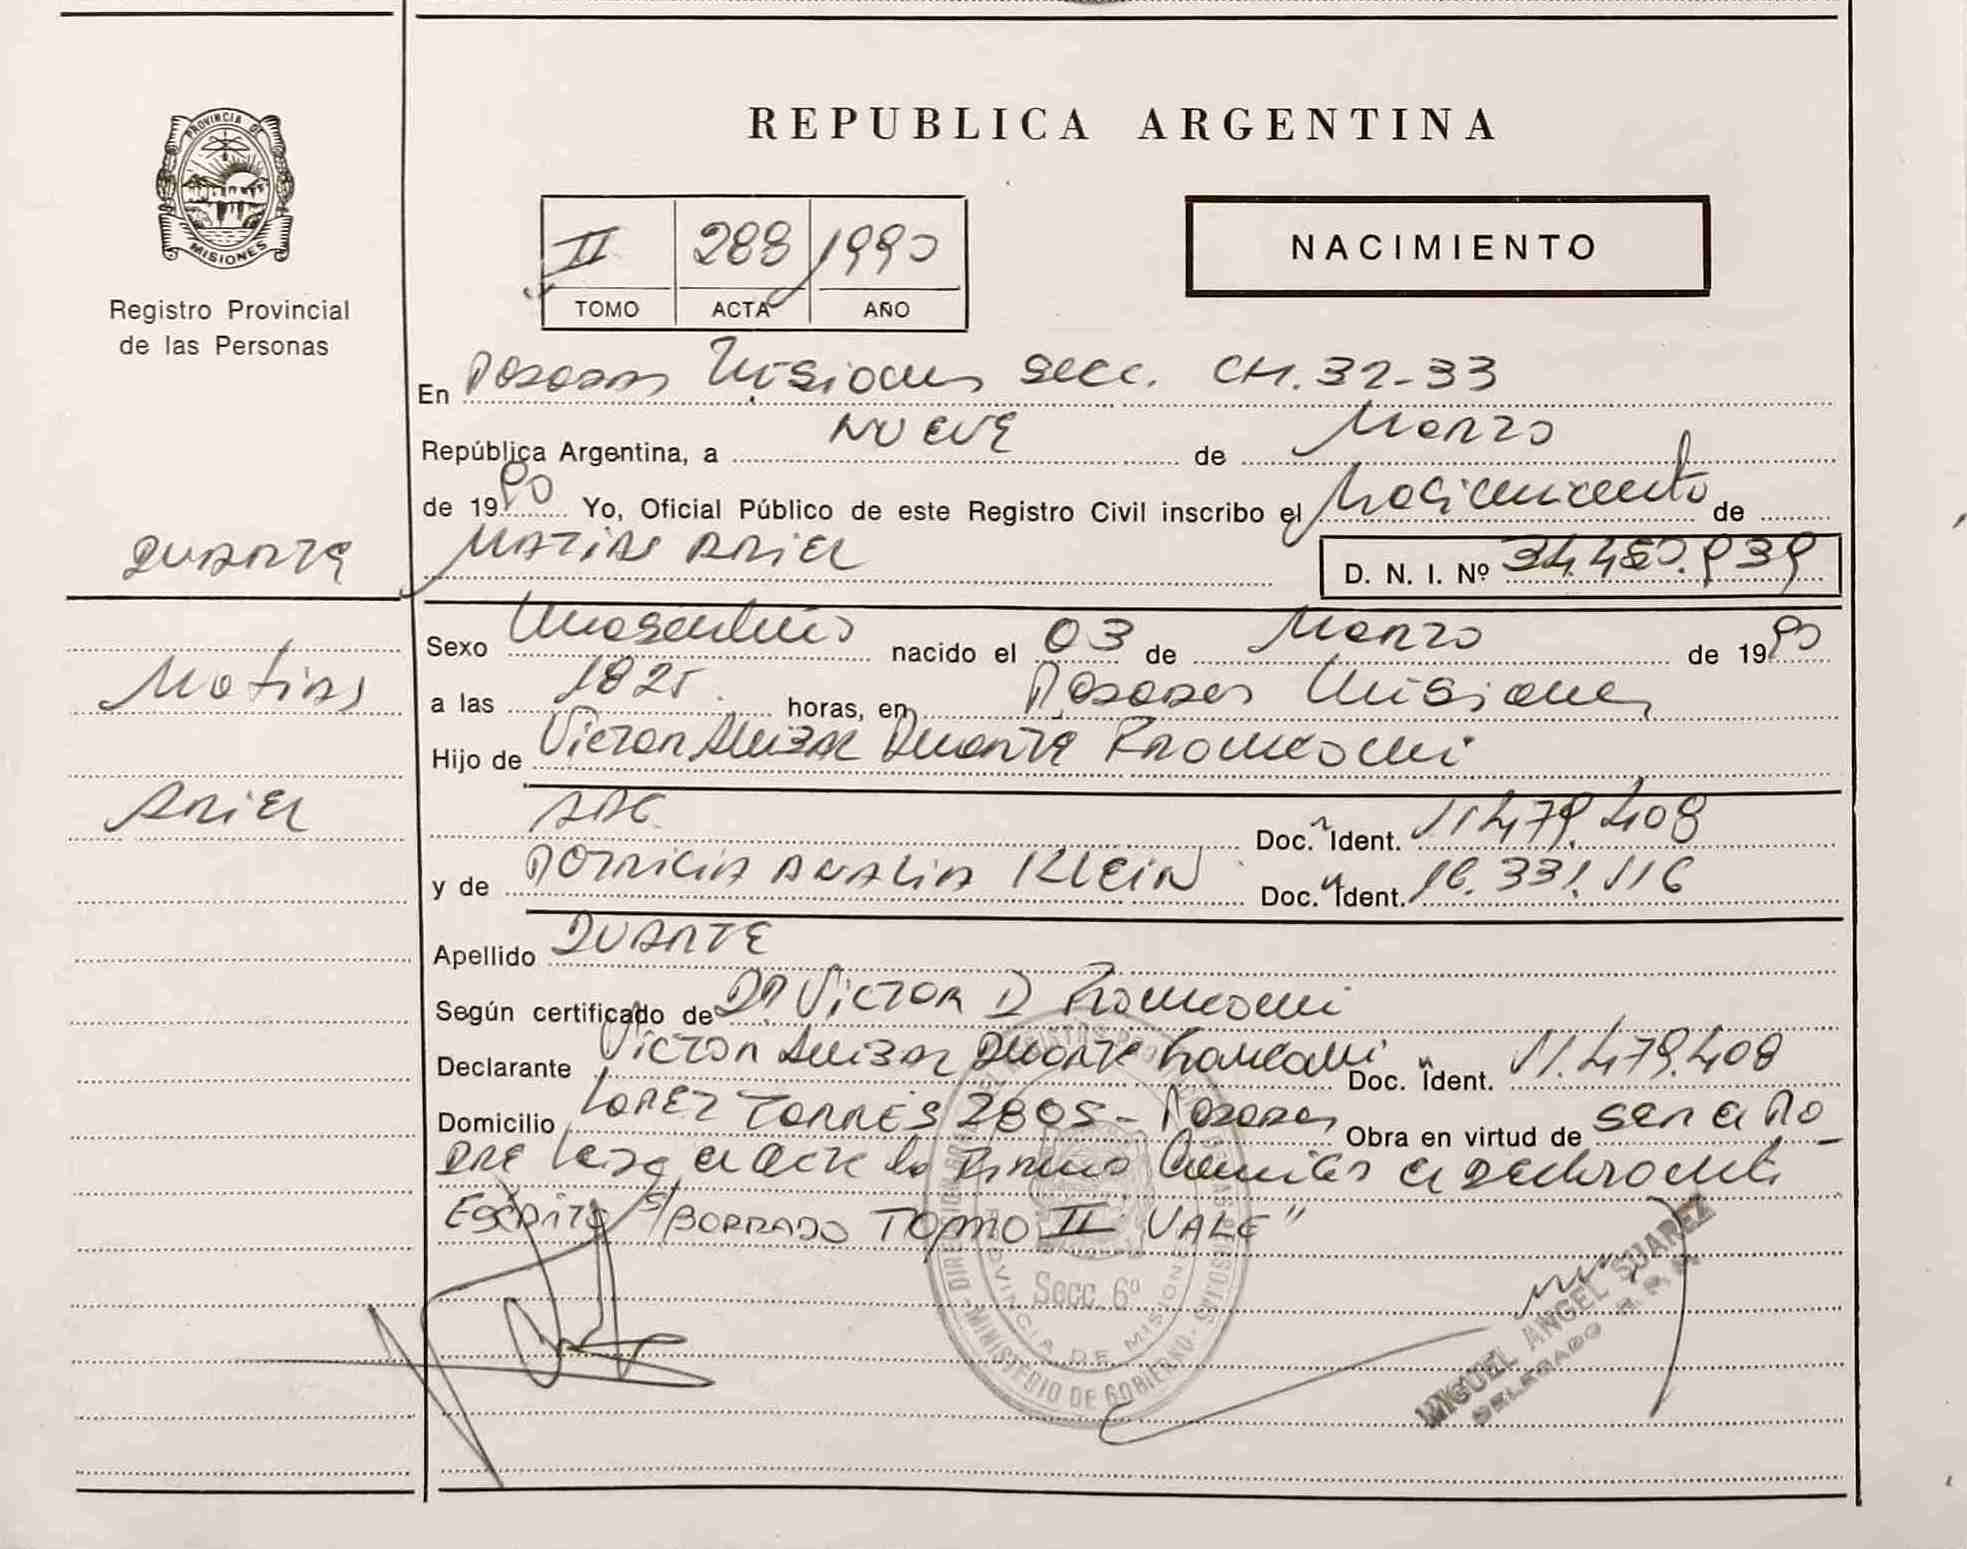 PROVINCIA DE
MISIONES
Registro Provincial
de las Personas
REPUBLICA ARGENTINA
II 288 1990
TOMO ACTA AÑO
NACIMIENTO
En Posadas Misiones Secc. CH. 32-33
República Argentina, a NUEVE de Marzo
de 1990 Yo, Oficial Público de este Registro Civil inscribo el Nacimiento de
DUARTE MATIAS ARIEL D. N. I. Nº 34.450.939
Sexo Masculino nacido el 03 de Marzo de 1990
Matias a las 1825 horas, en Posadas Misiones
Hijo de Victor Duarte
Ariel ARG. Doc. Ident. 11.479.408
y de PATRICIA ANALIA KLEIN Doc. Ident. 16.331.116
Apellido DUARTE
Según certificado de DR VICTOR D
Declarante Victor Duarte Doc. Ident. 11.479.408
Domicilio LOPEZ TORRES 2805 - Posadas Obra en virtud de ser el Pa
DRE Leida el Acta la Firma el declarante
Escrito s/BORRADO TOMO II VALE"
Secc. 6º
PROVINCIA DE MISIONES
MINISTERIO DE GOBIERNO
MIGUEL ANGEL SUAREZ
DELEGADO R. P. P.